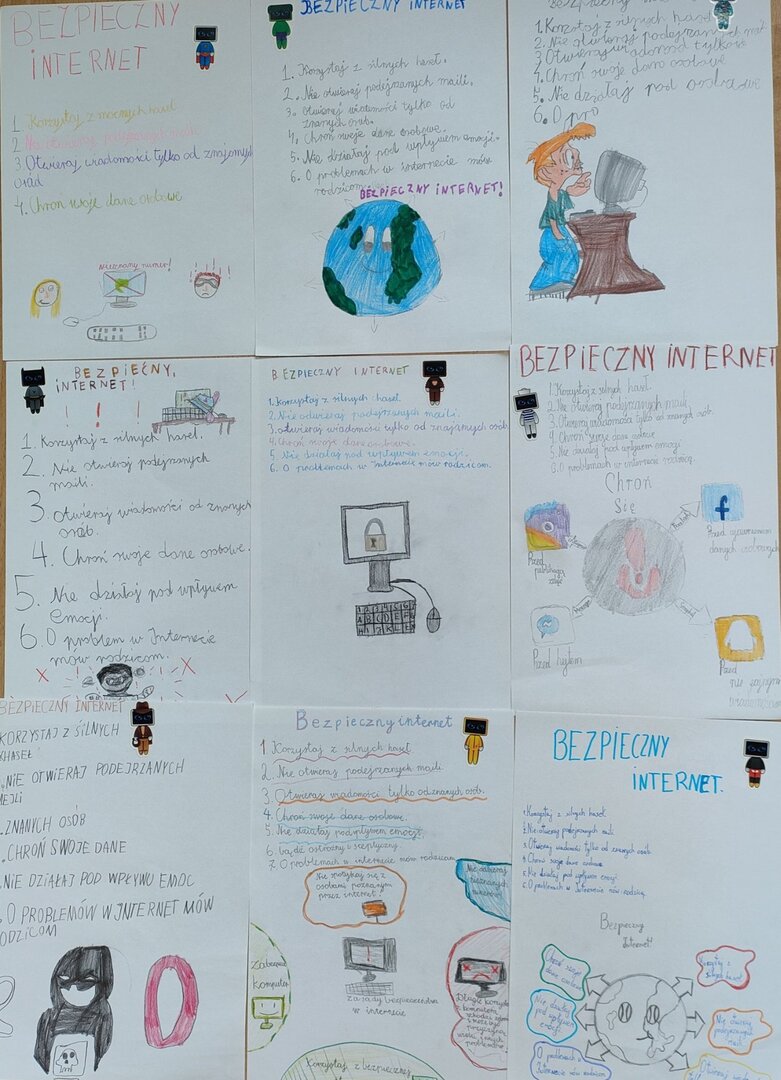 BEZPIECZNY
INTERNET
1 Korzystaj z mocnych haseł
2 Nie otwieraj podejrzanych maili
3. Otwieraj wiadomości tylko od znajomych
4. Chroń swoje dane osobowe
Nieznany numer!
BEZPIECZNY INTERNET
1. Korzystaj z silnych haseł.
2. Nie otwieraj podejrzanych maili.
3. Otwieraj wiadomości tylko od
znanych osub.
4. Chroń swoje dane osobowe.
5. Nie działaj pod wpływem emocji.
6. O problemach w internecie mów
rodzicom
BEZPIECZNY INTERNET!
1. Korzstaj z silnych haseł
2. Nie otwieraj podejrzanych
3. Otwieraj wiadomość tylko
4. Chroń swoje dane osobowe
5. Nie działaj pod
6. O pro
BEZPIEĆNY,
INTERNET!
! ! !
1. Korzystaj z silnych haseł.
2. Nie otwieraj podejrzanych
maili.
3. Otwieraj wiadomości od znanych
osób.
4. Chroń swoje dane osobowe.
5. Nie działaj pod wpływem
emocji.
6. O problem w Internecie
mów rodzicom.
BEZPIECZNY INTERNET
1. Korzystaj z silnych haseł.
2. Nie otwieraj podejrzanych maili.
3. otwieraj wiadomości tylko od znajomych osób
4. Chroń swoje dane osobowe.
5. Nie działaj pod wpływem emocji.
6. O problemach w internecie mów rodzicom.
BEZPIECZNY INTERNET
1. Korzystaj z silnych haseł.
2. Nie otwieraj podejrzanych maili.
3. Otwieraj wiadomości tylko od znanych osób.
4. Chroń swoje dane osobowe
5. Nie działaj pod wpływem emocji
6. O problemach w internecie mów rodzicą.
Chroń
Się
f
Przed ujawnieniem
danych osobowych
Przed
Przed hejtem
Przed
BEZPIECZNY INTERNET
KORZYSTAJ Z SILNYCH
HASEŁ
NIE OTWIERAJ PODEJRZANYCH
MEJLI
ZNANYCH OSÓB
CHROŃ SWOJE DANE
NIE DZIAŁAJ POD WPŁYWU EMOC
O PROBLEMÓW W INTERNET MÓW
RODZICOM
Bezpieczny internet
1. Korzystaj z silnych haseł
2. Nie otwieraj podejrzanych maili
3. Otwieraj wiadomości tylko od znanych osób.
4. Chroń swoje dane osobowe.
5. Nie działaj pod wpływem emocji.
6. bądź ostrożny i sceptyczny.
7. O problemach w internecie mów rodzicom
Nie spotykaj się z
osobami poznanymi
przez internet!
Nie odbieraj
nieznanych
Zabezpiecz
komputer
!
Zasady bezpieczeństwa
w internecie
Korzystaj z bezpiecznej
BEZPIECZNY
INTERNET.
1. Korzystaj z silnych haseł.
2. Nie otwieraj podejrzanych maili.
3. Otwieraj wiadomości tylko od znanych osób.
4. Chroń swoje dane osobowe.
5. Nie działaj pod wpływem emocji.
6. O problemach w Internecie mów rodzicą.
Bezpieczny
Internet!
Chroń swoje
dane osobowe
Korzystaj z
silnych haseł
Nie działaj
pod wpływem
emocji
Nie otwieraj
podejrzanych
maili
O problemach w
Internecie mów rodzicom